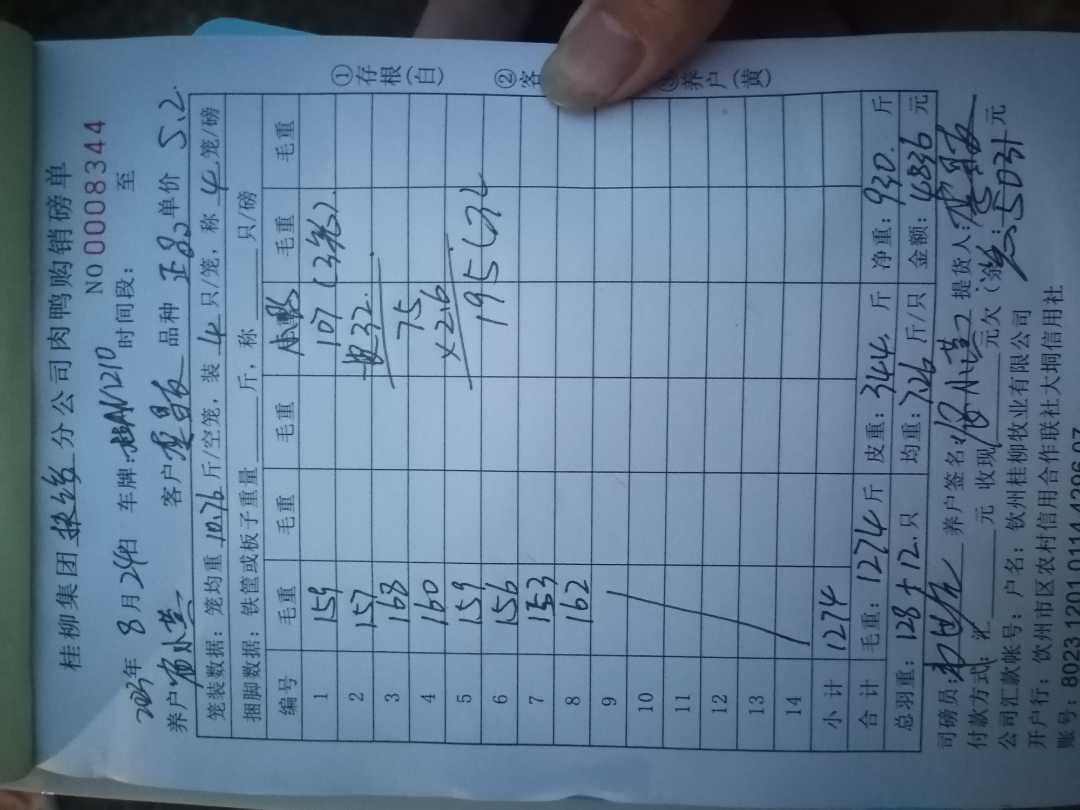 桂柳集团 分公司肉鸭购销磅单
NO 0008344
2023年 8月24日 车牌: 时间段: 至
养户 客户 品种 正品 单价 5.2
笼装数据: 笼均重 10.76 斤/空笼, 装 4 只/笼, 称 4 笼/磅
捆脚数据: 铁筐或板子重量 斤, 称 只/磅
编号 毛重 毛重 毛重 毛重 毛重
1 159 107 (3笼)
2 157 32
3 168 75
4 160 ×2.6
5 159 195
6 156
7 153
8 162
9
10
11
12
13
14
小计 1274
合计 毛重: 1274 斤 皮重: 344 斤 净重: 930 斤
总羽重: 128+12 只 均重: 7.26 斤/只 金额: 4836 元
司磅员: 养户签名: 提货人:
付款方式: 汇 元 收现 元欠 5031 元
公司汇款帐号: 户名: 钦州桂柳牧业有限公司
开户行: 钦州市区农村信用合作联社大垌信用社
账号: 8023 1201 0114 4296 07
①存根(白) ②客 养户(黄)